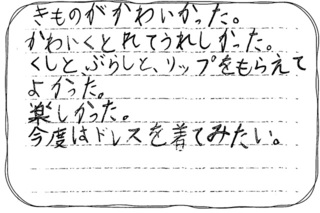 きものがかわいかった。
かわいくとれてうれしかった。
くしと、ぶらしと、リップをもらえて
よかった。
楽しかった。
今度はドレスを着てみたい。